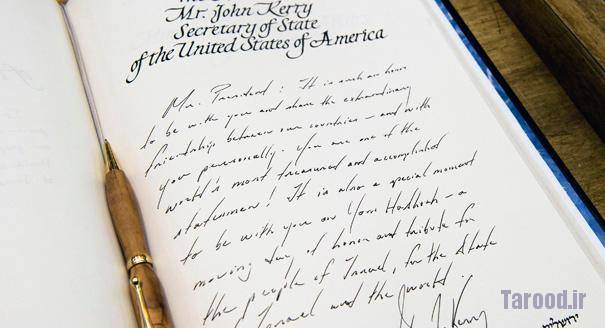 Mr. John Kerry
Secretary of State
of the United States of America
Mr. President: It is such an honor
to be with you and share the extraordinary
friendship between our countries - and with
you personally. You are one of the
world's most treasured and accomplished
statesmen! It is also a special moment
to be with you on Yom HaShoah - a
moving day of honor and tribute for
the people of Israel, for the State
Israel and the world...
Kerry
Tarood.ir